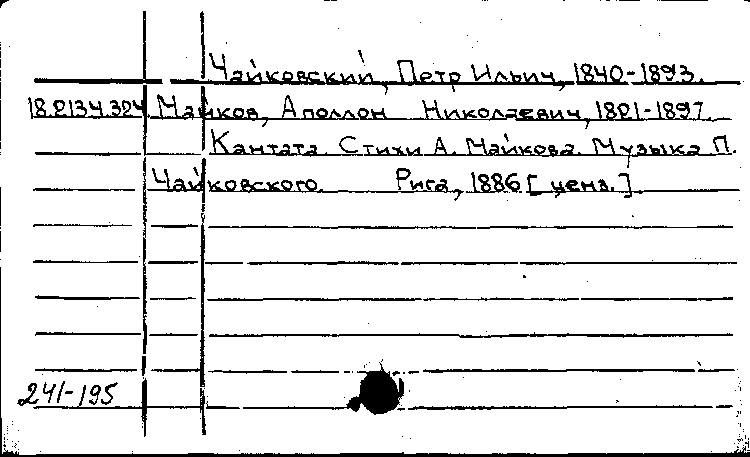 Чайковский, Петр Ильич, 1840-1893.
18.213ч.324 Майков, Аполлон Николаевич, 1821-1897.
Кантата. Стихи А. Майкова. Музыка П.
Чайковского. Рига, 1886 [ценз.].
241-195